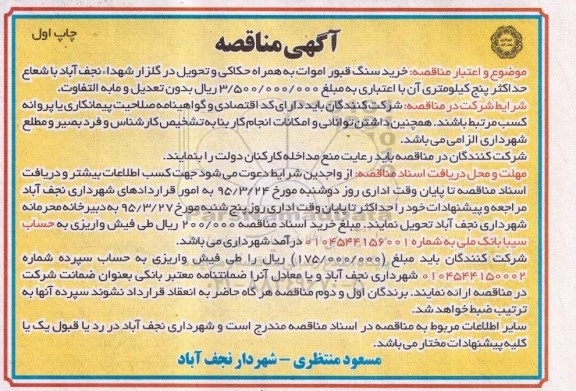 چاپ اول
آگهی مناقصه
موضوع و اعتبار مناقصه: خرید سنگ قبور اموات به همراه حکاکی و تحویل در گلزار شهداء نجف آباد با شعاع
حداکثر پنج کیلومتری آن با اعتباری به مبلغ ۳/۵۰۰/۰۰۰/۰۰۰ ریال بدون تعدیل و مابه التفاوت.
شرایط شرکت در مناقصه: شرکت کنندگان باید دارای کد اقتصادی و گواهینامه صلاحیت پیمانکاری یا پروانه
کسب مرتبط باشند. همچنین داشتن توانائی و امکانات انجام کار بنا به تشخیص کارشناس و فرد بصیر و مطلع
شهرداری الزامی می باشد.
شرکت کنندگان در مناقصه باید رعایت منع مداخله کارکنان دولت را بنمایند.
مهلت و محل دریافت اسناد مناقصه: از واجدین شرایط دعوت می شود جهت کسب اطلاعات بیشتر و دریافت
اسناد مناقصه تا پایان وقت اداری روز دوشنبه مورخ ۹۵/۳/۲۴ به امور قراردادهای شهرداری نجف آباد
مراجعه و پیشنهادات خود را حداکثر تا پایان وقت اداری روز پنج شنبه مورخ ۹۵/۳/۲۷ به دبیرخانه محرمانه
شهرداری نجف آباد تحویل نمایند. مبلغ خرید اسناد مناقصه ۲۰۰/۰۰۰ ریال طی فیش واریزی به حساب
سیبا بانک ملی به شماره ۰۱۰۴۵۴۴۱۵۶۰۰۱ درآمد شهرداری می باشد.
شرکت کنندگان باید مبلغ (۱۷۵/۰۰۰/۰۰۰) ریال را طی فیش واریزی به حساب سپرده شماره
۰۱۰۴۵۴۴۱۵۰۰۰۲ شهرداری نجف آباد و یا معادل آنرا ضمانتنامه معتبر بانکی بعنوان ضمانت شرکت
در مناقصه ارائه نمایند. برندگان اول و دوم مناقصه هر گاه حاضر به انعقاد قرارداد نشوند سپرده آنها به
ترتیب ضبط خواهد شد.
سایر اطلاعات مربوط به مناقصه در اسناد مناقصه مندرج است و شهرداری نجف آباد در رد یا قبول یک یا
کلیه پیشنهادات مختار می باشد.
مسعود منتظری - شهردار نجف آباد